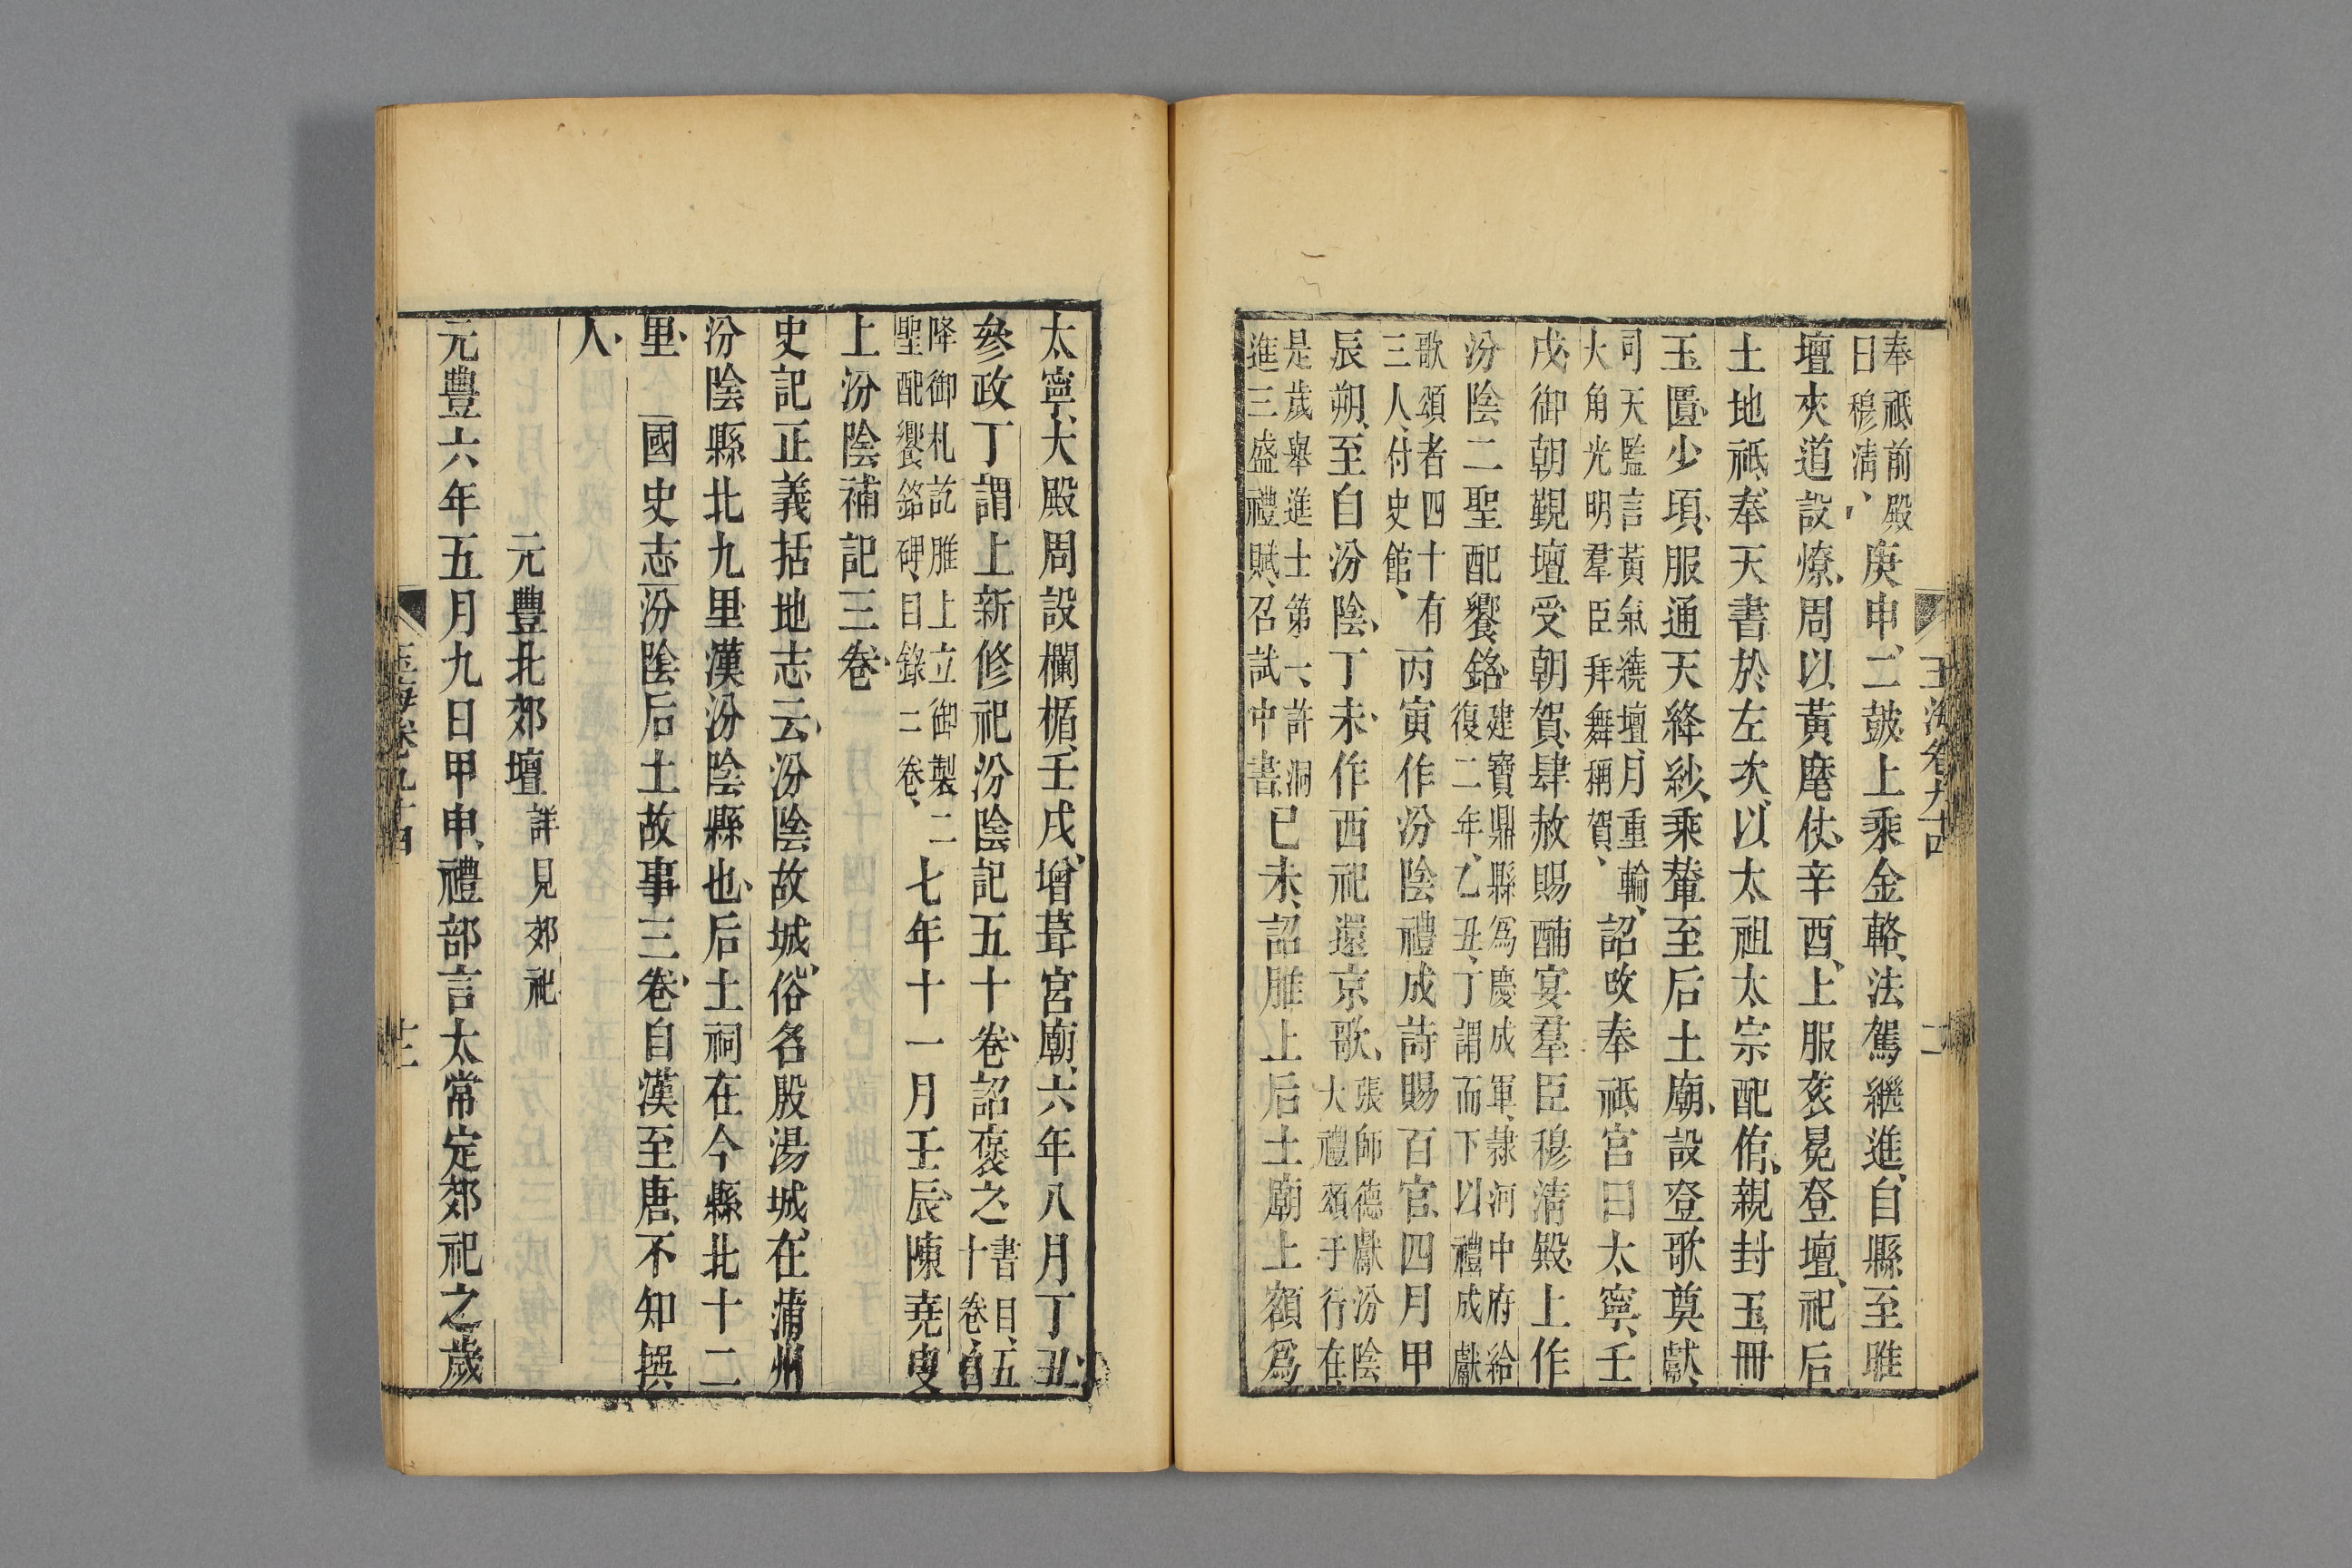 玉海卷九十四
奉祗前殿曰穆清、庚申、二鼓、上乘金輅、法駕繼進、自縣至脽
壇夾道設燎、周以黃麾仗、辛酉、上服袞冕登壇、祀后
土地祗、奉天書於左次、以太祖太宗配侑、親封玉冊
玉匱、少頃、服通天絳紗、乘輦至后土廟、設登歌奠獻、
司天監言黃氣繞壇、月重輪、大角光明羣臣拜舞稱賀、詔改奉祗宮曰太寧、壬
戌、御朝覲壇受朝賀、肆赦賜酺宴羣臣穆清殿、上作
汾陰二聖配饗銘、建寶鼎縣爲慶成軍、隸河中府給復二年、乙丑、丁謂而下以禮成獻
歌頌者四十有三人、付史館、丙寅作汾陰禮成詩賜百官、四月甲
辰朔、至自汾陰、丁未、作西祀還京歌、張師德獻汾陰大禮頌于行在、
是歲舉進士第一、許洞進三盛禮賦、召試中書、已未、詔脽上后土廟上額爲
太寧、大殿周設欄楯、壬戌、增葺宮廟、六年八月丁丑、
參政丁謂上新修祀汾陰記五十卷、詔褒之書目、五十卷、自
降御札訖脽上立御製二聖配饗銘碑、目錄二卷、七年十一月壬辰、陳堯叟
上汾陰補記三卷、
史記正義括地志云、汾陰故城、俗名殷湯城、在蒲州
汾陰縣北九里漢汾陰縣也、后土祠在今縣北十二
里、 國史志汾陰后土故事三卷、自漢至唐、不知撰
人、
元豐北郊壇詳見郊祀
元豐六年五月九日甲申、禮部言太常定郊祀之歲
玉海卷九十四